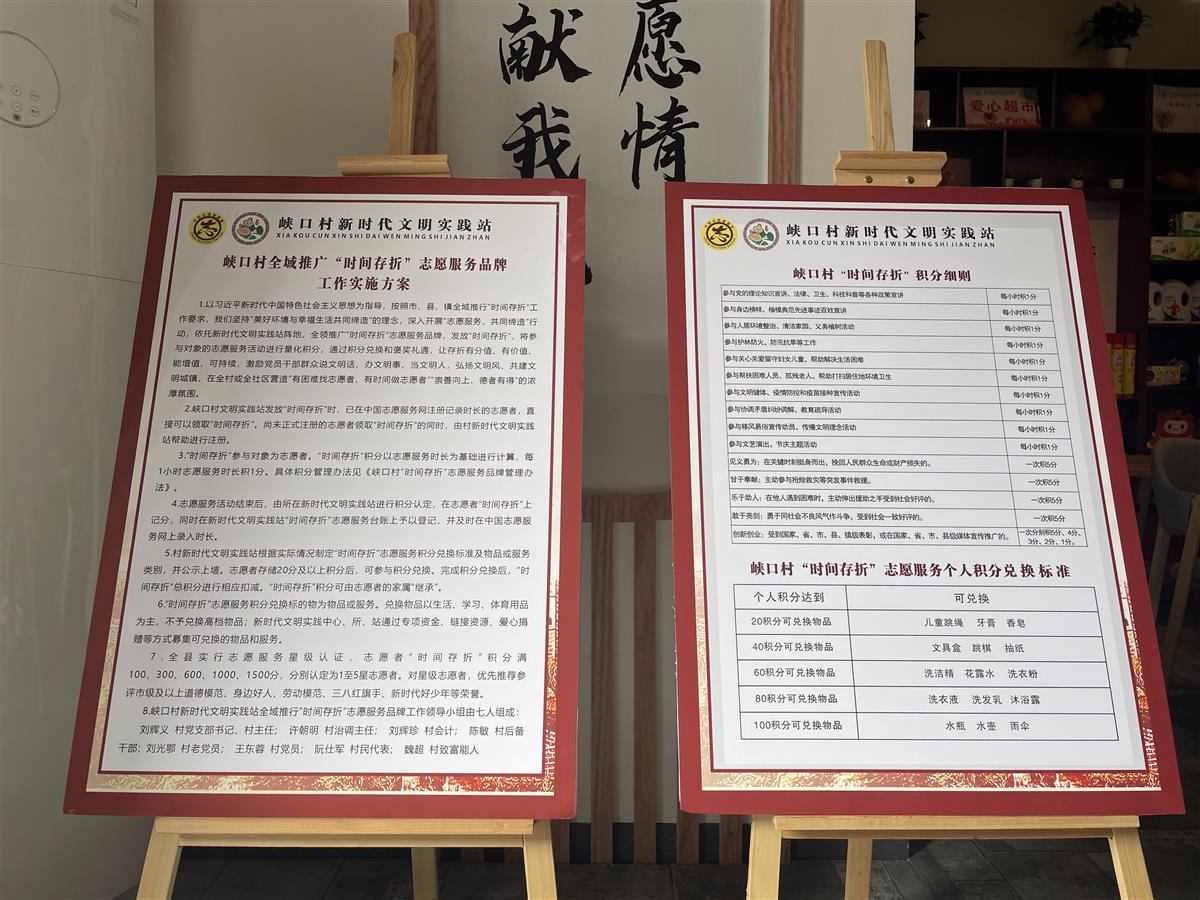 献 愿
我 情
爱心超市
峡口村新时代文明实践站
XIA KOU CUN XIN SHI DAI WEN MING SHI JIAN ZHAN
峡口村全域推广“时间存折”志愿服务品牌
工作实施方案
1.以习近平新时代中国特色社会主义思想为指导，按照市、县、镇全域推行“时间存折”工
作要求，我们坚持“美好环境与幸福生活共同缔造”的理念，深入开展“志愿服务、共同缔造”行
动，依托新时代文明实践站阵地，全领推广“时间存折”志愿服务品牌，发放“时间存折”，将参
与对象的志愿服务活动进行量化积分，通过积分兑换和褒奖礼遇，让存折有分值、有价值、
能增值、可持续，激励党员干部群众说文明话、办文明事，当文明人，弘扬文明风、共建文
明城镇，在全村或全社区营造“有困难找志愿者、有时间做志愿者”“崇善向上、德者有得”的浓
厚氛围。
2.峡口村文明实践站发放“时间存折”时，已在中国志愿服务网注册记录时长的志愿者，直
接可以领取“时间存折”。尚未正式注册的志愿者领取“时间存折”的同时，由村新时代文明实践
站帮助进行注册。
3.“时间存折”参与对象为志愿者。“时间存折”积分以志愿服务时长为基础进行计算，每
1小时志愿服务时长积1分。具体积分管理办法见《峡口村“时间存折”志愿服务品牌管理办
法》。
4.志愿服务活动结束后，由所在新时代文明实践站进行积分认定，在志愿者“时间存折”上
记分，同时在新时代文明实践站“时间存折”志愿服务台账上予以登记，并及时在中国志愿服
务网上录入时长。
5.村新时代文明实践站根据实际情况制定“时间存折”志愿服务积分兑换标准及物品或服务
类别，并公示上墙。志愿者存储20分及以上积分后，可参与积分兑换。完成积分兑换后，“时
间存折”总积分进行相应扣减。“时间存折”积分可由志愿者的家属“继承”。
6.“时间存折”志愿服务积分兑换标的物为物品或服务。兑换物品以生活、学习、体育用品
为主，不予兑换高档物品；新时代文明实践中心、所、站通过专项资金、链接资源、爱心捐
赠等方式募集可兑换的物品和服务。
7.全县实行志愿服务星级认证，志愿者“时间存折”积分满
100、300、600、1000、1500分，分别认定为1至5星志愿者。对星级志愿者，优先推荐参
评市级及以上道德模范、身边好人、劳动模范、三八红旗手、新时代好少年等荣誉。
8.峡口村新时代文明实践站全域推行“时间存折”志愿服务品牌工作领导小组由七人组成：
刘辉义 村党支部书记、村主任； 许朝明 村治调主任； 刘辉珍 村会计； 陈敏 村后备
干部；刘光鄂 村老党员； 王东蓉 村党员； 阮仕军 村民代表； 魏超 村致富能人
峡口村新时代文明实践站
XIA KOU CUN XIN SHI DAI WEN MING SHI JIAN ZHAN
峡口村“时间存折”积分细则
参与党的理论知识宣讲、法律、卫生、科技科普等各种政策宣讲 每小时积1分
参与身边榜样、楷模典范先进事迹百姓宣讲 每小时积1分
参与人居环境整治、清洁家园、义务植树活动 每小时积1分
参与护林防火、防汛抗旱等工作 每小时积1分
参与关心关爱留守妇女儿童，帮助解决生活困难 每小时积1分
参与帮扶困难人员、孤残老人、帮助打扫居住地环境卫生 每小时积1分
参与文明健体、疫情防控和疫苗接种宣传活动 每小时积1分
参与协调矛盾纠纷调解、教育疏导活动 每小时积1分
参与移风易俗宣传动员、传播文明理念活动 每小时积1分
参与文艺演出、节庆主题活动 每小时积1分
见义勇为：在关键时刻挺身而出，挽回人民群众生命或财产损失的。 一次积5分
甘于奉献：主动参与抢险救灾等突发事件救援。 一次积5分
乐于助人：在他人遇到困难时，主动伸出援助之手受到社会好评的。 一次积5分
敢于亮剑：勇于同社会不良风气作斗争，受到社会一致好评的。 一次积5分
创新创业：受到国家、省、市、县、镇级表彰，或在国家、省、市、县级媒体宣传推广的。 一次分别积5分、4分、
3分、2分、1分。
峡口村“时间存折”志愿服务个人积分兑换标准
个人积分达到 可兑换
20积分可兑换物品 儿童跳绳 牙膏 香皂
40积分可兑换物品 文具盒 跳棋 抽纸
60积分可兑换物品 洗洁精 花露水 洗衣粉
80积分可兑换物品 洗衣液 洗发乳 沐浴露
100积分可兑换物品 水瓶 水壶 雨伞